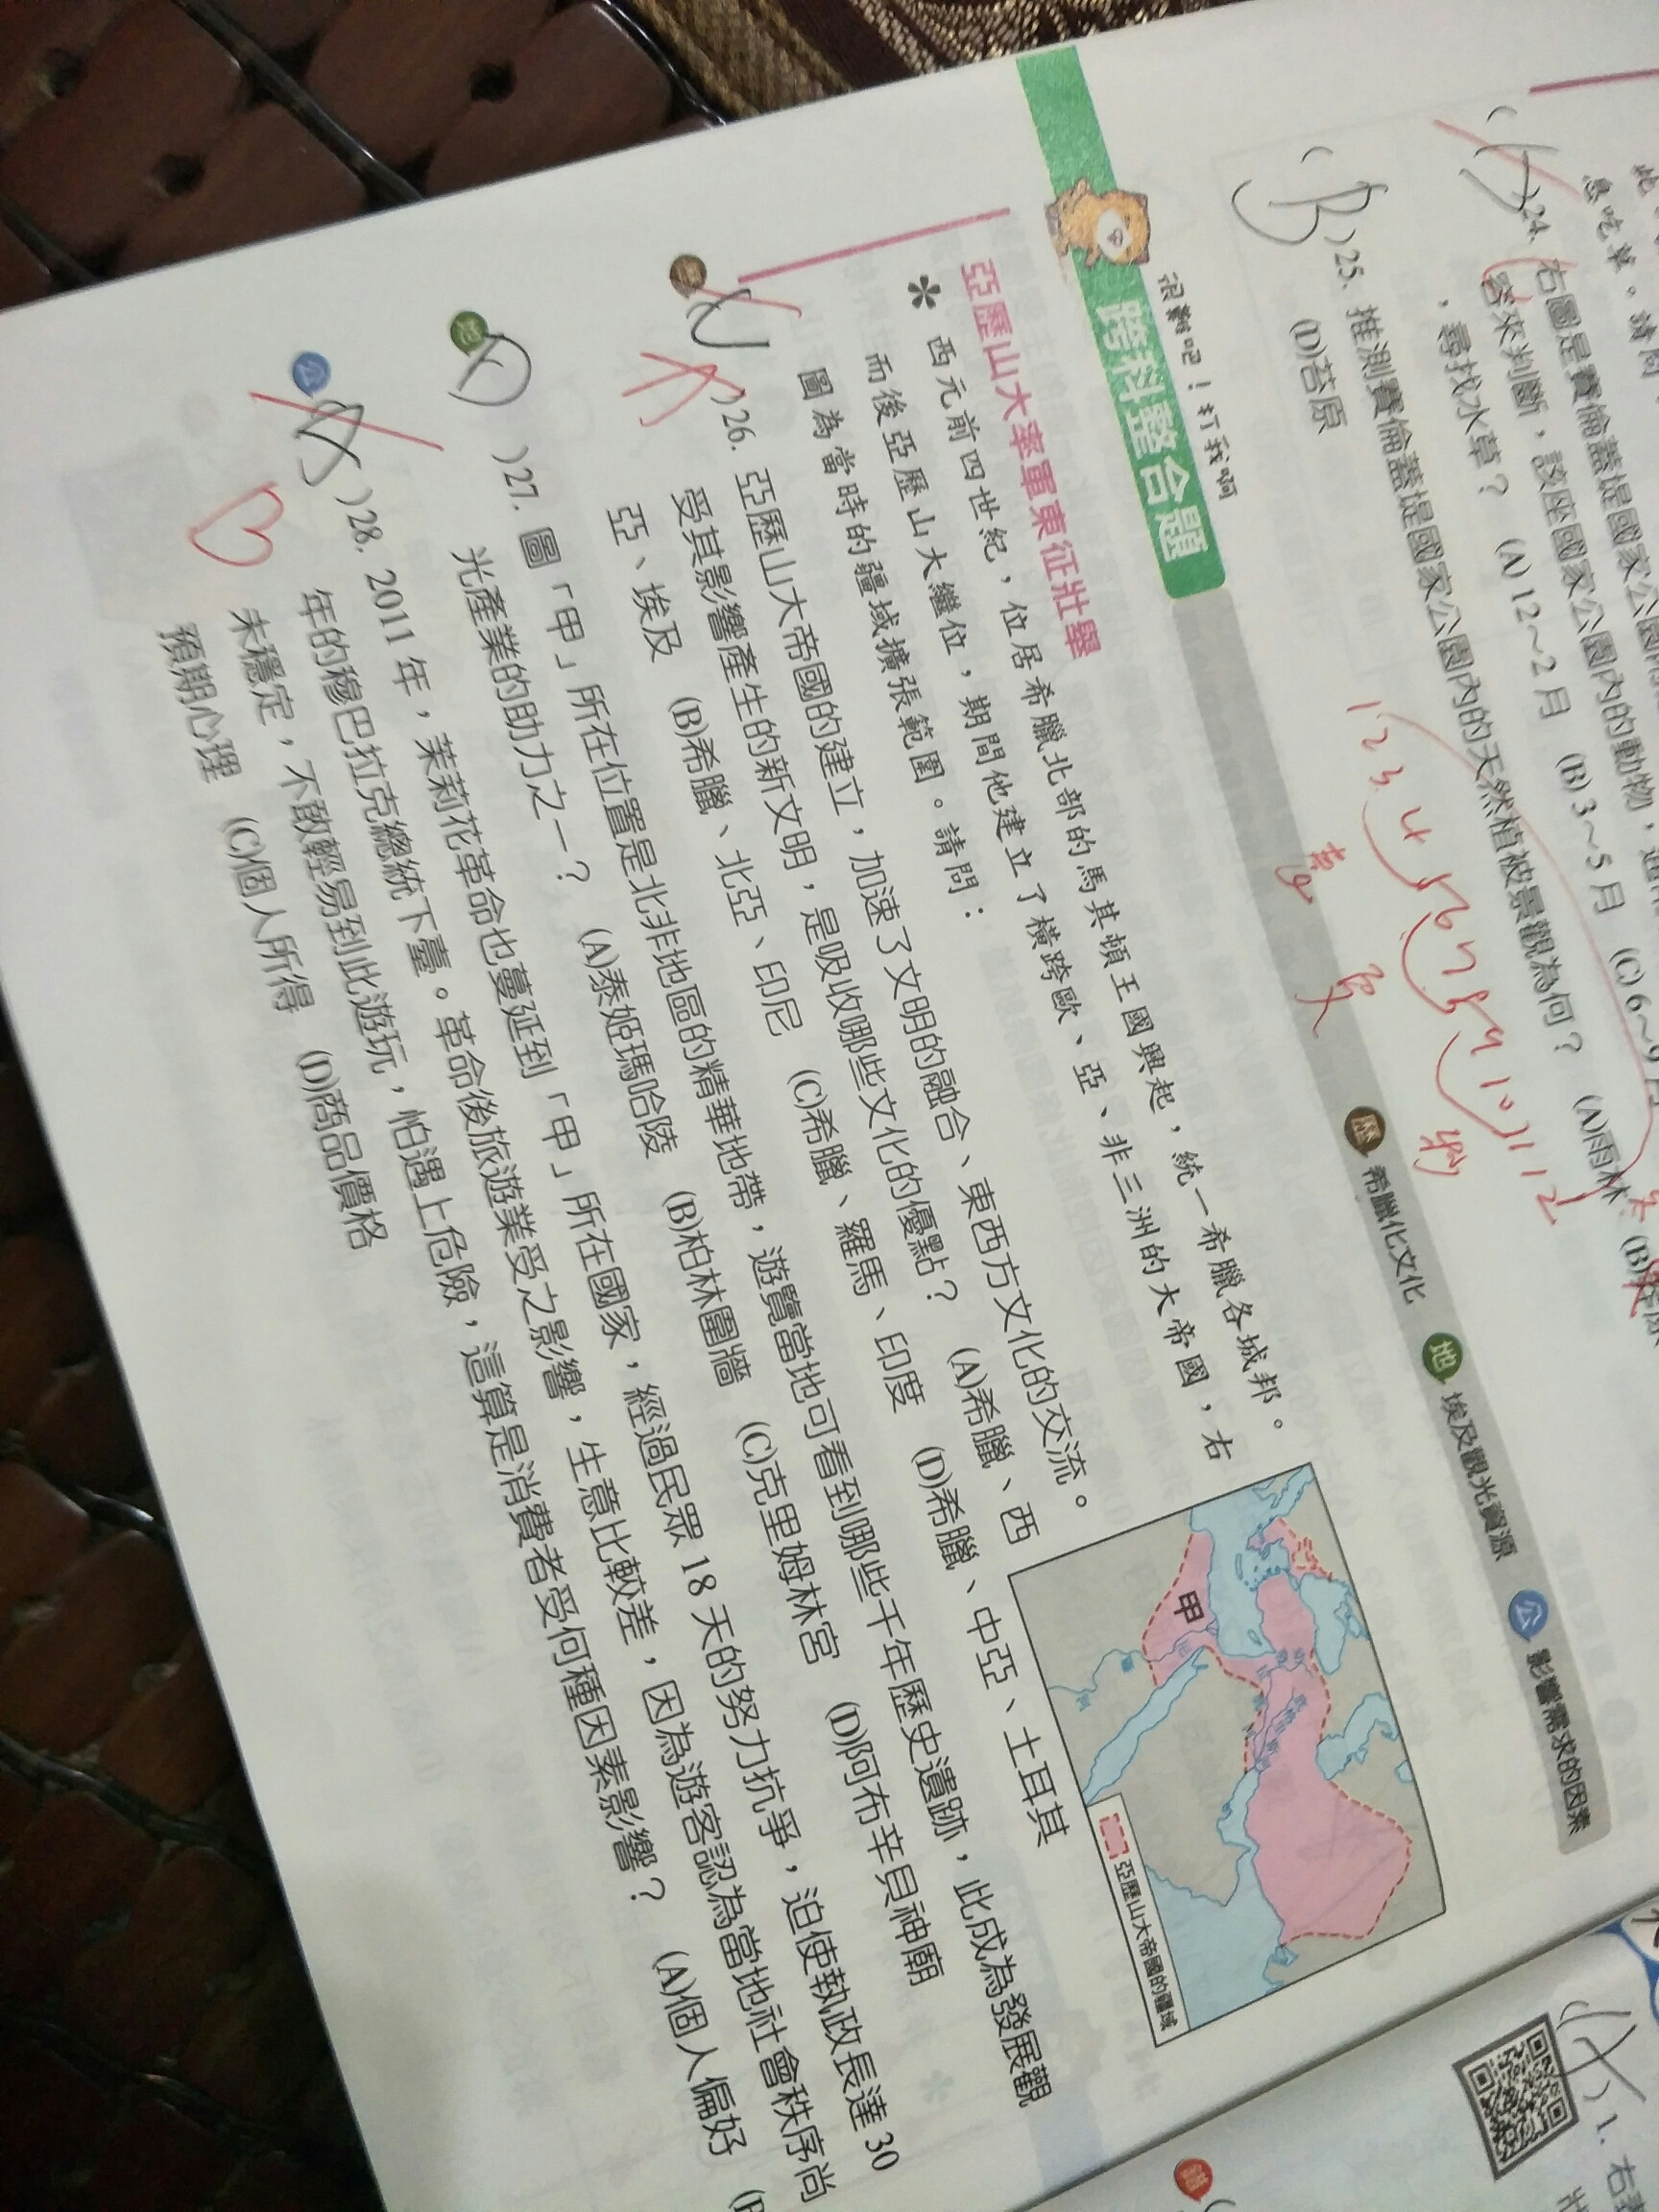 此
息吃草。請問
24. 右圖是賽倫蓋堤國家公園
客來判斷，該座國家公園內的動物，
，尋找水草？ (A) 12～2月 (B) 3～5月 (C) 6～9月
(B) 25. 推測賽倫蓋堤國家公園內的天然植被景觀為何？ (A)雨林 (B)
(D)苔原
1 2 3 4 5 6 7 8 9 10 11 12
很難吧！打我啊
跨科整合題
歷 希臘化文化 地 埃及觀光資源 公 影響需求的因素
亞歷山大率軍東征壯舉
＊ 西元前四世紀，位居希臘北部的馬其頓王國興起，統一希臘各城邦。
而後亞歷山大繼位，期間他建立了橫跨歐、亞、非三洲的大帝國，右
圖為當時的疆域擴張範圍。請問：
甲
亞歷山大帝國的疆域
歷 )26. 亞歷山大帝國的建立，加速了文明的融合、東西方文化的交流。
受其影響產生的新文明，是吸收哪些文化的優點？ (A)希臘、西
亞、埃及 (B)希臘、北亞、印尼 (C)希臘、羅馬、印度 (D)希臘、中亞、土耳其
地 (D) 27. 圖「甲」所在位置是北非地區的精華地帶，遊覽當地可看到哪些千年歷史遺跡，此成為發展觀
光產業的助力之一？ (A)泰姬瑪哈陵 (B)柏林圍牆 (C)克里姆林宮 (D)阿布辛貝神廟
公 )28. 2011 年，茉莉花革命也蔓延到「甲」所在國家，經過民眾 18 天的努力抗爭，迫使執政長達 30
年的穆巴拉克總統下臺。革命後旅遊業受之影響，生意比較差，因為遊客認為當地社會秩序尚
未穩定，不敢輕易到此遊玩，怕遇上危險，這算是消費者受何種因素影響？ (A)個人偏好 (B
預期心理 (C)個人所得 (D)商品價格
B
1. 右